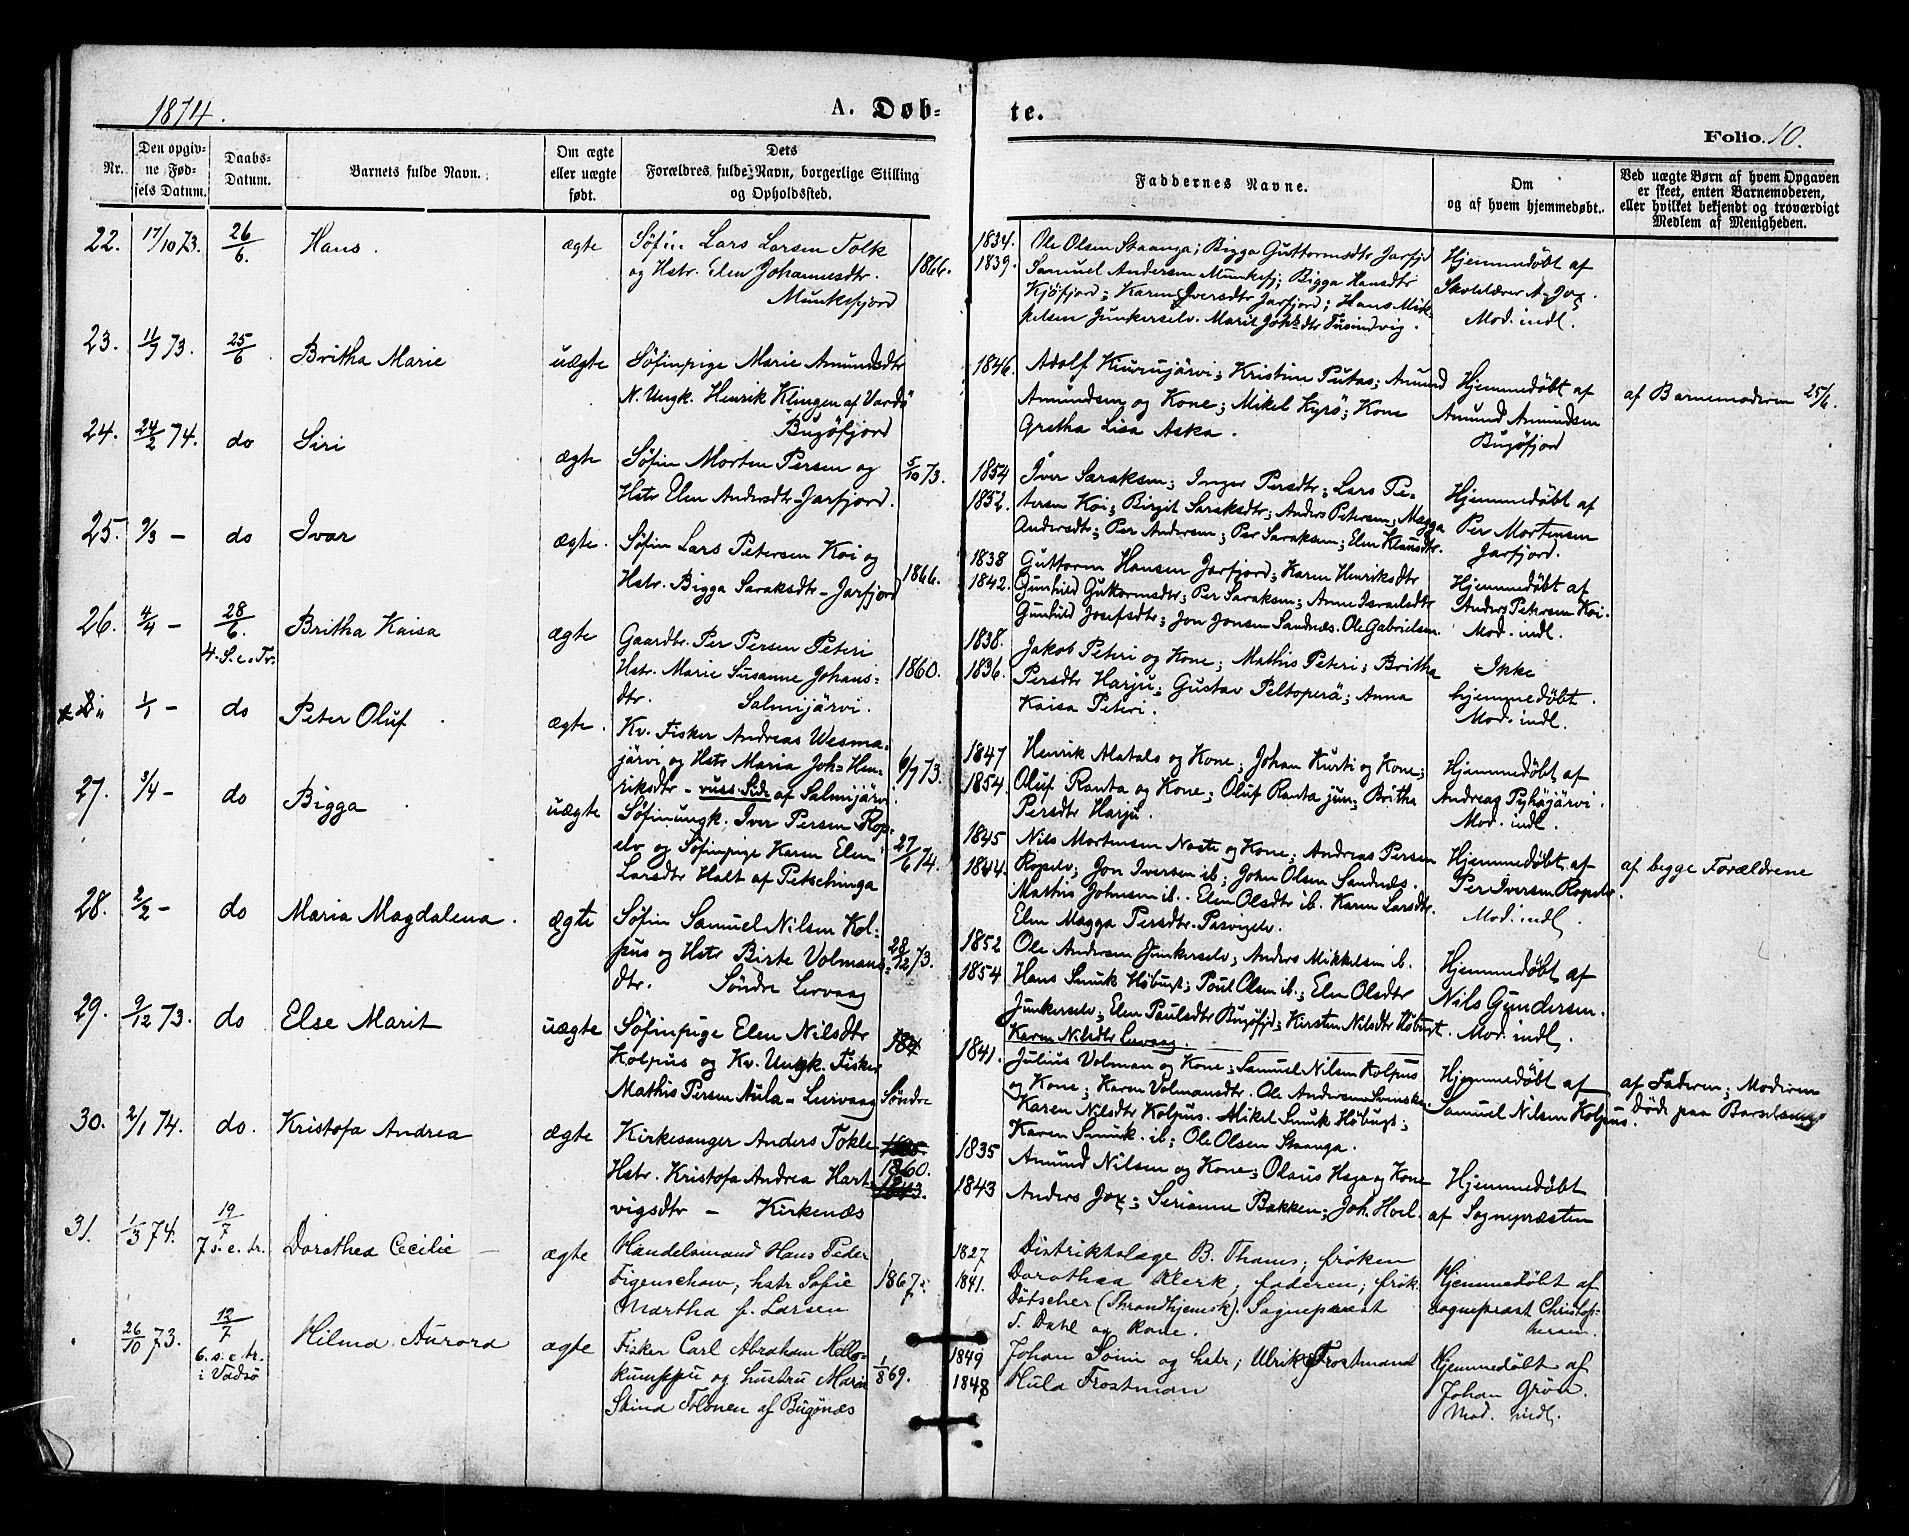 1874.
A. Døb-
te.
Folio. 10.
Nr.
Den opgiv-
ne Fød-
sels Datum.
Daabs-
Datum.
Barnets fulde Navn.
Om ægte
eller uægte
født.
Dets
Forældres fulde Navn, borgerlige Stilling
og Opholdssted.
Faddernes Navne.
Om
og af hvem hjemmedøbt.
Ved uægte Børn af hvem Opgaven
er skeet, enten Barnemoderen,
eller hvilket bekjendt og troværdigt
Medlem af Menigheden.
22. 17/10 73. 26/6. Hans. ægte
Søfin Lars Larsen Tolk
og Hstr. Elen Johannesdtr.
Munkefjord
1866.
1834.
1839.
Ole Olsen Staanga; Bigga Guttormsdtr Jarfjd
Samuel Andersen Munkefj; Bigga Hansdtr
Kjøfjord; Karen Iversdtr Jarfjord; Hans Mik-
kelsen Junkerselv. Marit Johsdtr
Hjemmedøbt af
Skolelærer A. Jox.
Mod. indl.
23. 11/9 73. 25/6 Britha Marie uægte
Søfinpige Marie Amundsdtr
N. Ungk. Henrik Klingen af Vardö
Bugøfjord
1846.
Adolf Kiurujärvi; Kristine Putas; Amund
Amundsen og Kone; Mikel Kyrö; Kone
Gretha Lisa Aska.
Hjemmedøbt af
Amund Amundsen
Bugøfjord
af Barnemoderen 25/6.
24. 24/2 74. do Siri ægte
Søfin Morten Persen og
Hstr Elen Andersdtr Jarfjord.
5/10 73.
1854
1852.
Iver Saraksen; Inger Persdtr; Lars Pe-
tersen Koi; Birgit Saraksdtr; Anders Petersen; Magga
Andersdtr; Per Andersen; Per Saraksen; Elen Klausdtr.
Hjemmedøbt af
Per Mortensen
Jarfjord.
25. 9/3 – do Ivar ægte.
Søfin Lars Petersen Koi og
Hstr. Bigga Saraksdtr – Jarfjord
1866.
1838
1842.
Guttorm Hansen Jarfjord; Karen Henriksdtr
Gunhild Guttormsdtr; Per Saraksen; Anne Israelsdtr
Gunhild Josefsdtr; Jon Jonsen Sandnæs. Ole Gabrielsen.
Hjemmedøbt af
Anders Petersen Koi.
Mod. indl.
26. 4/4 – 28/6.
4. S. e. Tr. Britha Kaisa ægte
Gaardbr. Per Persen Peteri
Hstr. Marie Susanne Johans-
dtr. Salmijärvi.
1860.
1838.
1836.
Jakob Peteri og Kone; Mathis Peteri; Britha
Persdtr Harju; Gustav Peltoperä; Anna
Kaisa Peteri.
Ikke
hjemmedøbt.
Mod. indl.
1/1 – do Peter Oluf ægte.
Kv. Fisker Andreas Wesma-
järvi og Hstr Maria Joh. Hen-
riksdtr – russ. Side af Salmijärvi.
6/7 73.
1847
1854.
Henrik Alatalo og Kone; Johan Kurti og Kone;
Oluf Ranta og Kone; Oluf Ranta jun; Britha
Persdtr Harju.
Hjemmedøbt af
Andreas Pyhäjärvi.
Mod. indl.
27. 3/4 – do Bigga uægte
Søfinungk. Iver Persen Rop-
elv og Søfinpige Karen Elen
Larsdtr Halt af Petschinga
27/6 74.
1845
1844.
Nils Mortensen Noste og Kone; Andreas Persen
Ropelv; Jon Iversen ib; John Olsen Sandnæs.
Mathis Johnsen ib. Elen Olsdtr ib. Karen Larsdtr.
Elen Magga Persdtr. Pasvigelv.
Hjemmedøbt af
Per Iversen Ropelv.
Mod. indl.
af begge Forældrene
28. 2/2 – do Maria Magdalena. ægte
Søfin Samuel Nilsen Kol-
pus og Hstr Birte Volmans-
dtr. Søndre Lervaag
28/12 73.
1852
1854.
Ole Andersen Junkerselv; Anders Mikkelsen ib.
Hans Smuk Høbugt; Poul Olsen ib.; Elen Olsdtr
Junkerselv; Elen Paulsdtr Bugøfjd; Kirsten Nilsdtr Høbugt.
Karen Nilsdtr Lervaag.
Hjemmedøbt af
Nils Gundersen.
Mod. indl.
29. 9/12 73. do Else Marit uægte
Søfinpige Elen Nilsdtr
Kolpus og Kv. Ungk. Fisker
Mathis Persen Aula – Lervaag Søndre
184
1841.
Julius Volman og Kone; Samuel Nilsen Kolpus
og Kone; Karen Volmansdtr. Ole Andersen Svensker
Karen Nilsdtr Kolpus. Mikel Smuk Høbugt;
Karen Smuk. ib; Ole Olsen Staanga.
Hjemmedøbt af
Samuel Nilsen Kolpus.
af Faderen; Moderen
død paa Barselseng
30. 2/1 74. do. Kristofa Andrea ægte
Kirkesanger Anders Tokle
Hstr. Kristofa Andrea Hart-
vigsdtr – Kirkenæs
1835
1860.
1843.
1835
1843
Amund Nilsen og Kone; Olaus Haga og Kone
Anders Jox; Serianne Bakken; Joh. Hoel.
Hjemmedøbt
af Sognepræsten
31. 1/3 74. 19/7
7 s. e. tr. Dorothea Cecilie – ægte
Handelsmand Hans Peder
Figenschow, hstr Sofie
Martha f. Larsen
1867.
1827
1841.
Distriktslæge B. Thams; frøken
Dorothea Klerk; faderen; frøk.
Døtscher (Throndhjemsk). Sognepræst
S. Dahl og kone.
Hjemmedøbt af
sognepræst Christop-
hersen.
26/10 73. 12/7
6. s. e. tr.
i Vadsö Hilma Aurora ægte
Fisker Carl Abraham Kello-
kumppu og hustru Maria
Stina Tolonen af Bugönæs
1/8 69.
1849
1848
Johan Soini og hstr; Ulrik Frostmand
Hulda Frostman
Hjemmedøbt af
Johan Grön.
Mod. indl.